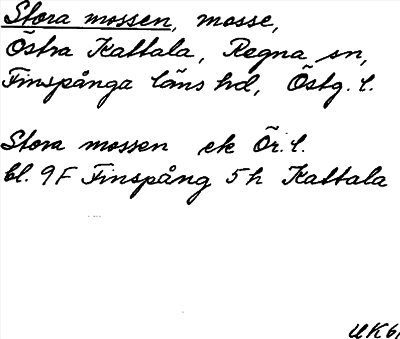 Stora mossen, mosse,
Östra Kattala, Regna sn,
Finspånga läns hd, Östg. l.
Stora mossen ek Ör. l.
bl. 9F Finspång 5h Kattala
UK61